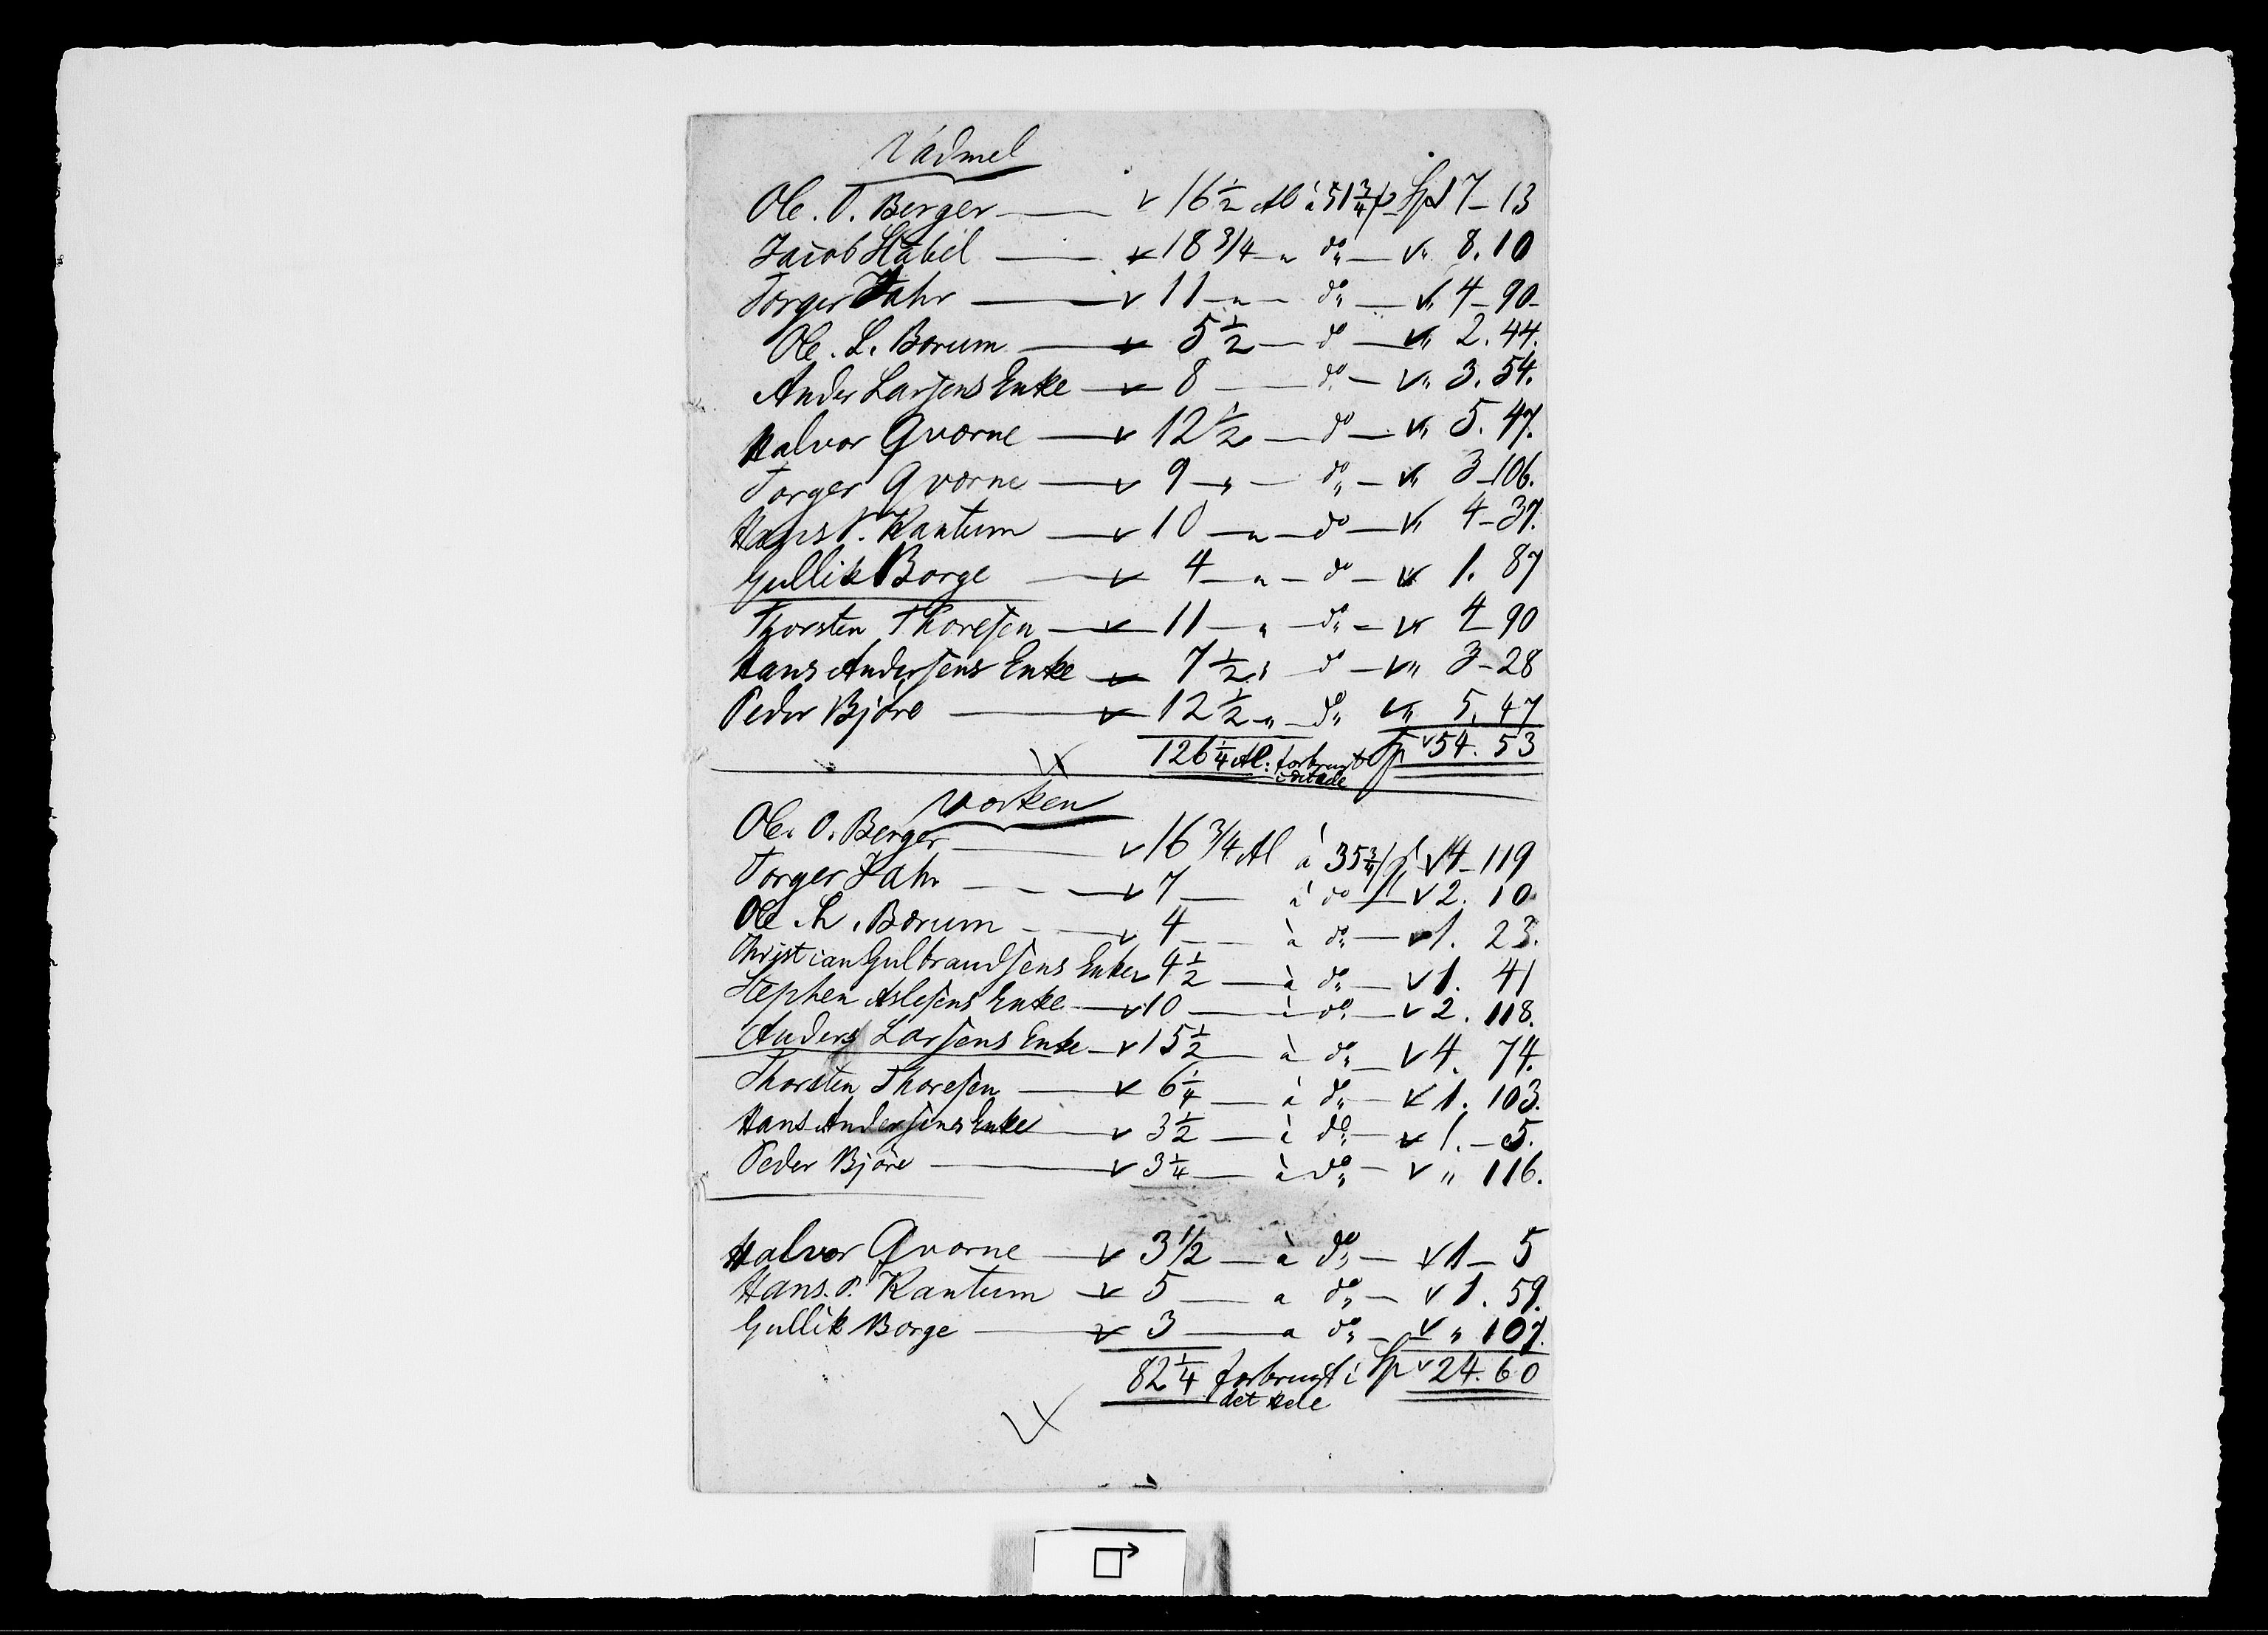 Vadmel
Ole. O. Berger — v 16 1/2 Al à 51 3/4 ß Spd 7 - 13
Jacob Stabel — v 18 3/4 " do — v " 8. 10
Torger Jahr — v 11 — " — do — v " 4 - 90 -
Ole. L. Borum — v 5 1/2 — do — v " 2. 44.
Ander Larsens Enke — v 8 — do — v " 3. 54.
Halvor Qvorne — v 12 1/2 — do — v " 5. 47.
Torger Qvorne — v 9 — " — do — v " 3 - 106.
Hans P. Rantum — v 10 — " — do — v " 4 - 37.
Gullik Borge — v 4 — " — do — v " 1. 87
Thorsten Thoresen — v 11 — " — do — v " 4 - 90
Hans Andersens Enke — v 7 1/2 " do — v " 3 - 28
Peder Björe — v 12 1/2 " — do v " 5. 47
126 1/4 Al: forbrugt Sp v 54. 53
i det hele
Vorken
Ole. O. Berger — v 16 3/4 Al à 35 3/4 ß v 4 - 119
Torger Jahr — v 7 — à do — v 2. 10
Ole L. Borum — v 4 — à do — v 1. 23.
Christian Gulbrandsens Enke v 4 1/2 — à do — v 1. 41
Stephen Aslesens Enke — v 10 — à do — v 2. 118.
Anders Larsens Enke — v 15 1/2 — à do — v 4. 74.
Thorsten Thoresen — v 6 1/4 — à do — v 1. 103.
Hans Andersens Enke — v 3 1/2 — à do — v 1. - 5.
Peder Björe — v 3 1/4 — à do — v " 116.
Halvor Qvorne — v 3 1/2 — à do — v 1 - 5
Hans. P. Rantum — v 5 — a do — v 1. 59.
Gullik Borge — v 3 — a do — v " 107.
82 1/4 forbrugt i Sp v 24. 60
det hele